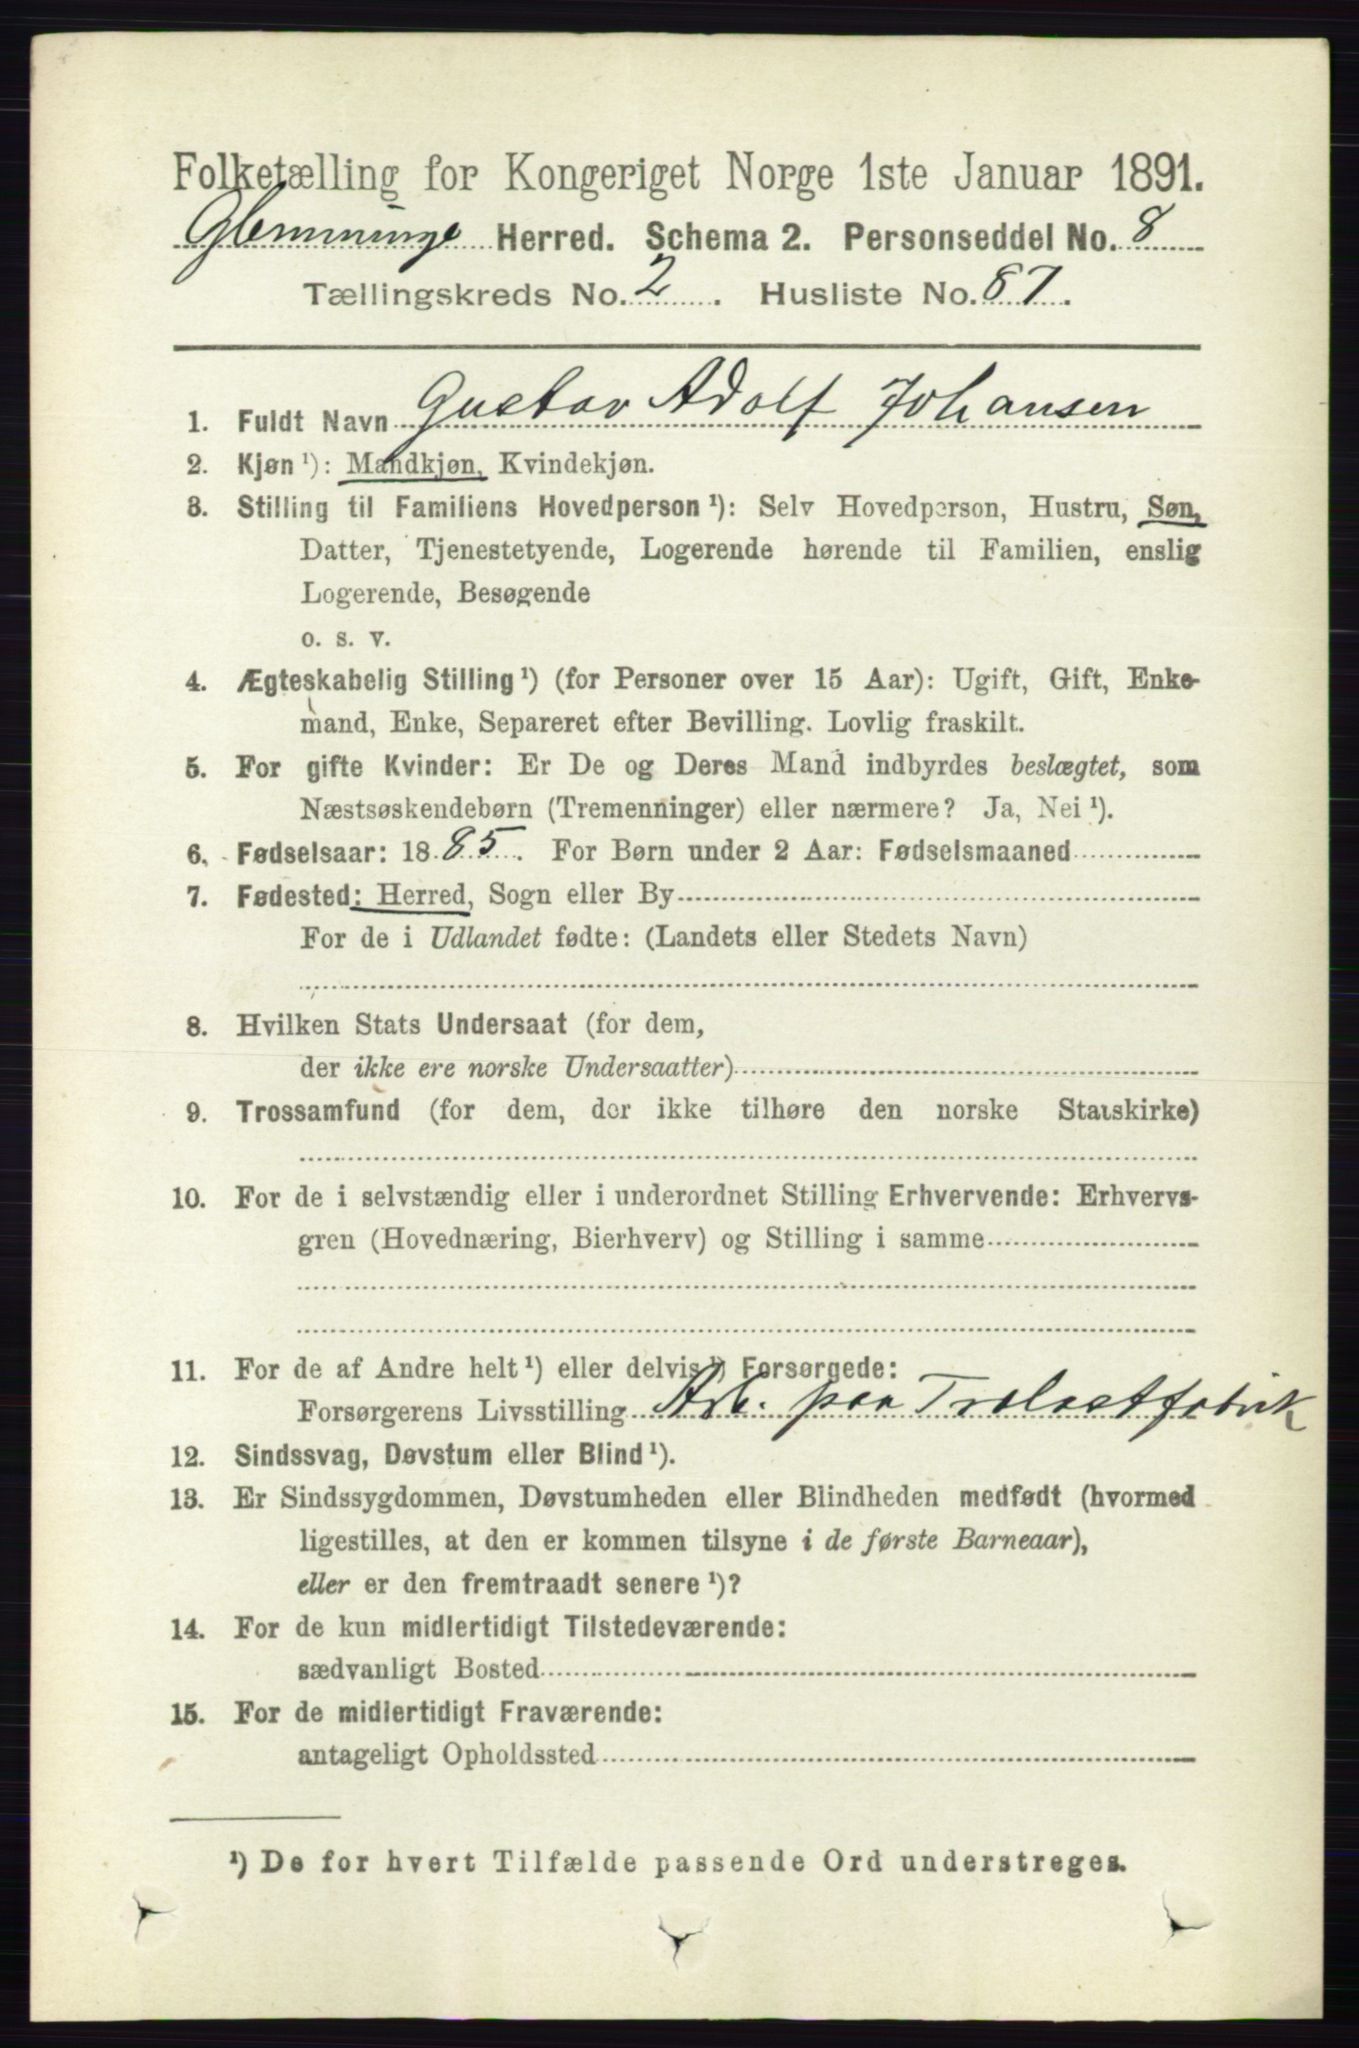 Folketælling for Kongeriget Norge 1ste Januar 1891.
Glemminge Herred. Schema 2. Personseddel No. 8
Tællingskreds No. 2. Husliste No. 87.
1. Fuldt Navn Gustav Adolf Johansen
2. Kjøn ¹): Mandkjøn, Kvindekjøn.
3. Stilling til Familiens Hovedperson ¹): Selv Hovedperson, Hustru, Søn,
Datter, Tjenestetyende, Logerende hørende til Familien, enslig
Logerende, Besøgende
o. s. v.
4. Ægteskabelig Stilling ¹) (for Personer over 15 Aar): Ugift, Gift, Enke-
mand, Enke, Separeret efter Bevilling. Lovlig fraskilt.
5. For gifte Kvinder: Er De og Deres Mand indbyrdes beslægtet, som
Næstsøskendebørn (Tremenninger) eller nærmere? Ja, Nei ¹).
6. Fødselsaar: 1885. For Børn under 2 Aar: Fødselsmaaned
7. Fødested: Herred, Sogn eller By
For de i Udlandet fødte: (Landets eller Stedets Navn)
8. Hvilken Stats Undersaat (for dem,
der ikke ere norske Undersaatter)
9. Trossamfund (for dem, der ikke tilhøre den norske Statskirke)
10. For de i selvstændig eller i underordnet Stilling Erhvervende: Erhvervs-
gren (Hovednæring, Bierhverv) og Stilling i samme
11. For de af Andre helt ¹) eller delvis ¹) Forsørgede:
Forsørgerens Livsstilling Arb. paa Trælastfabrik
12. Sindssvag, Døvstum eller Blind ¹).
13. Er Sindssygdommen, Døvstumheden eller Blindheden medfødt (hvormed
ligestilles, at den er kommen tilsyne i de første Barneaar),
eller er den fremtraadt senere ¹)?
14. For de kun midlertidigt Tilstedeværende:
sædvanligt Bosted
15. For de midlertidigt Fraværende:
antageligt Opholdssted
¹) De for hvert Tilfælde passende Ord understreges.